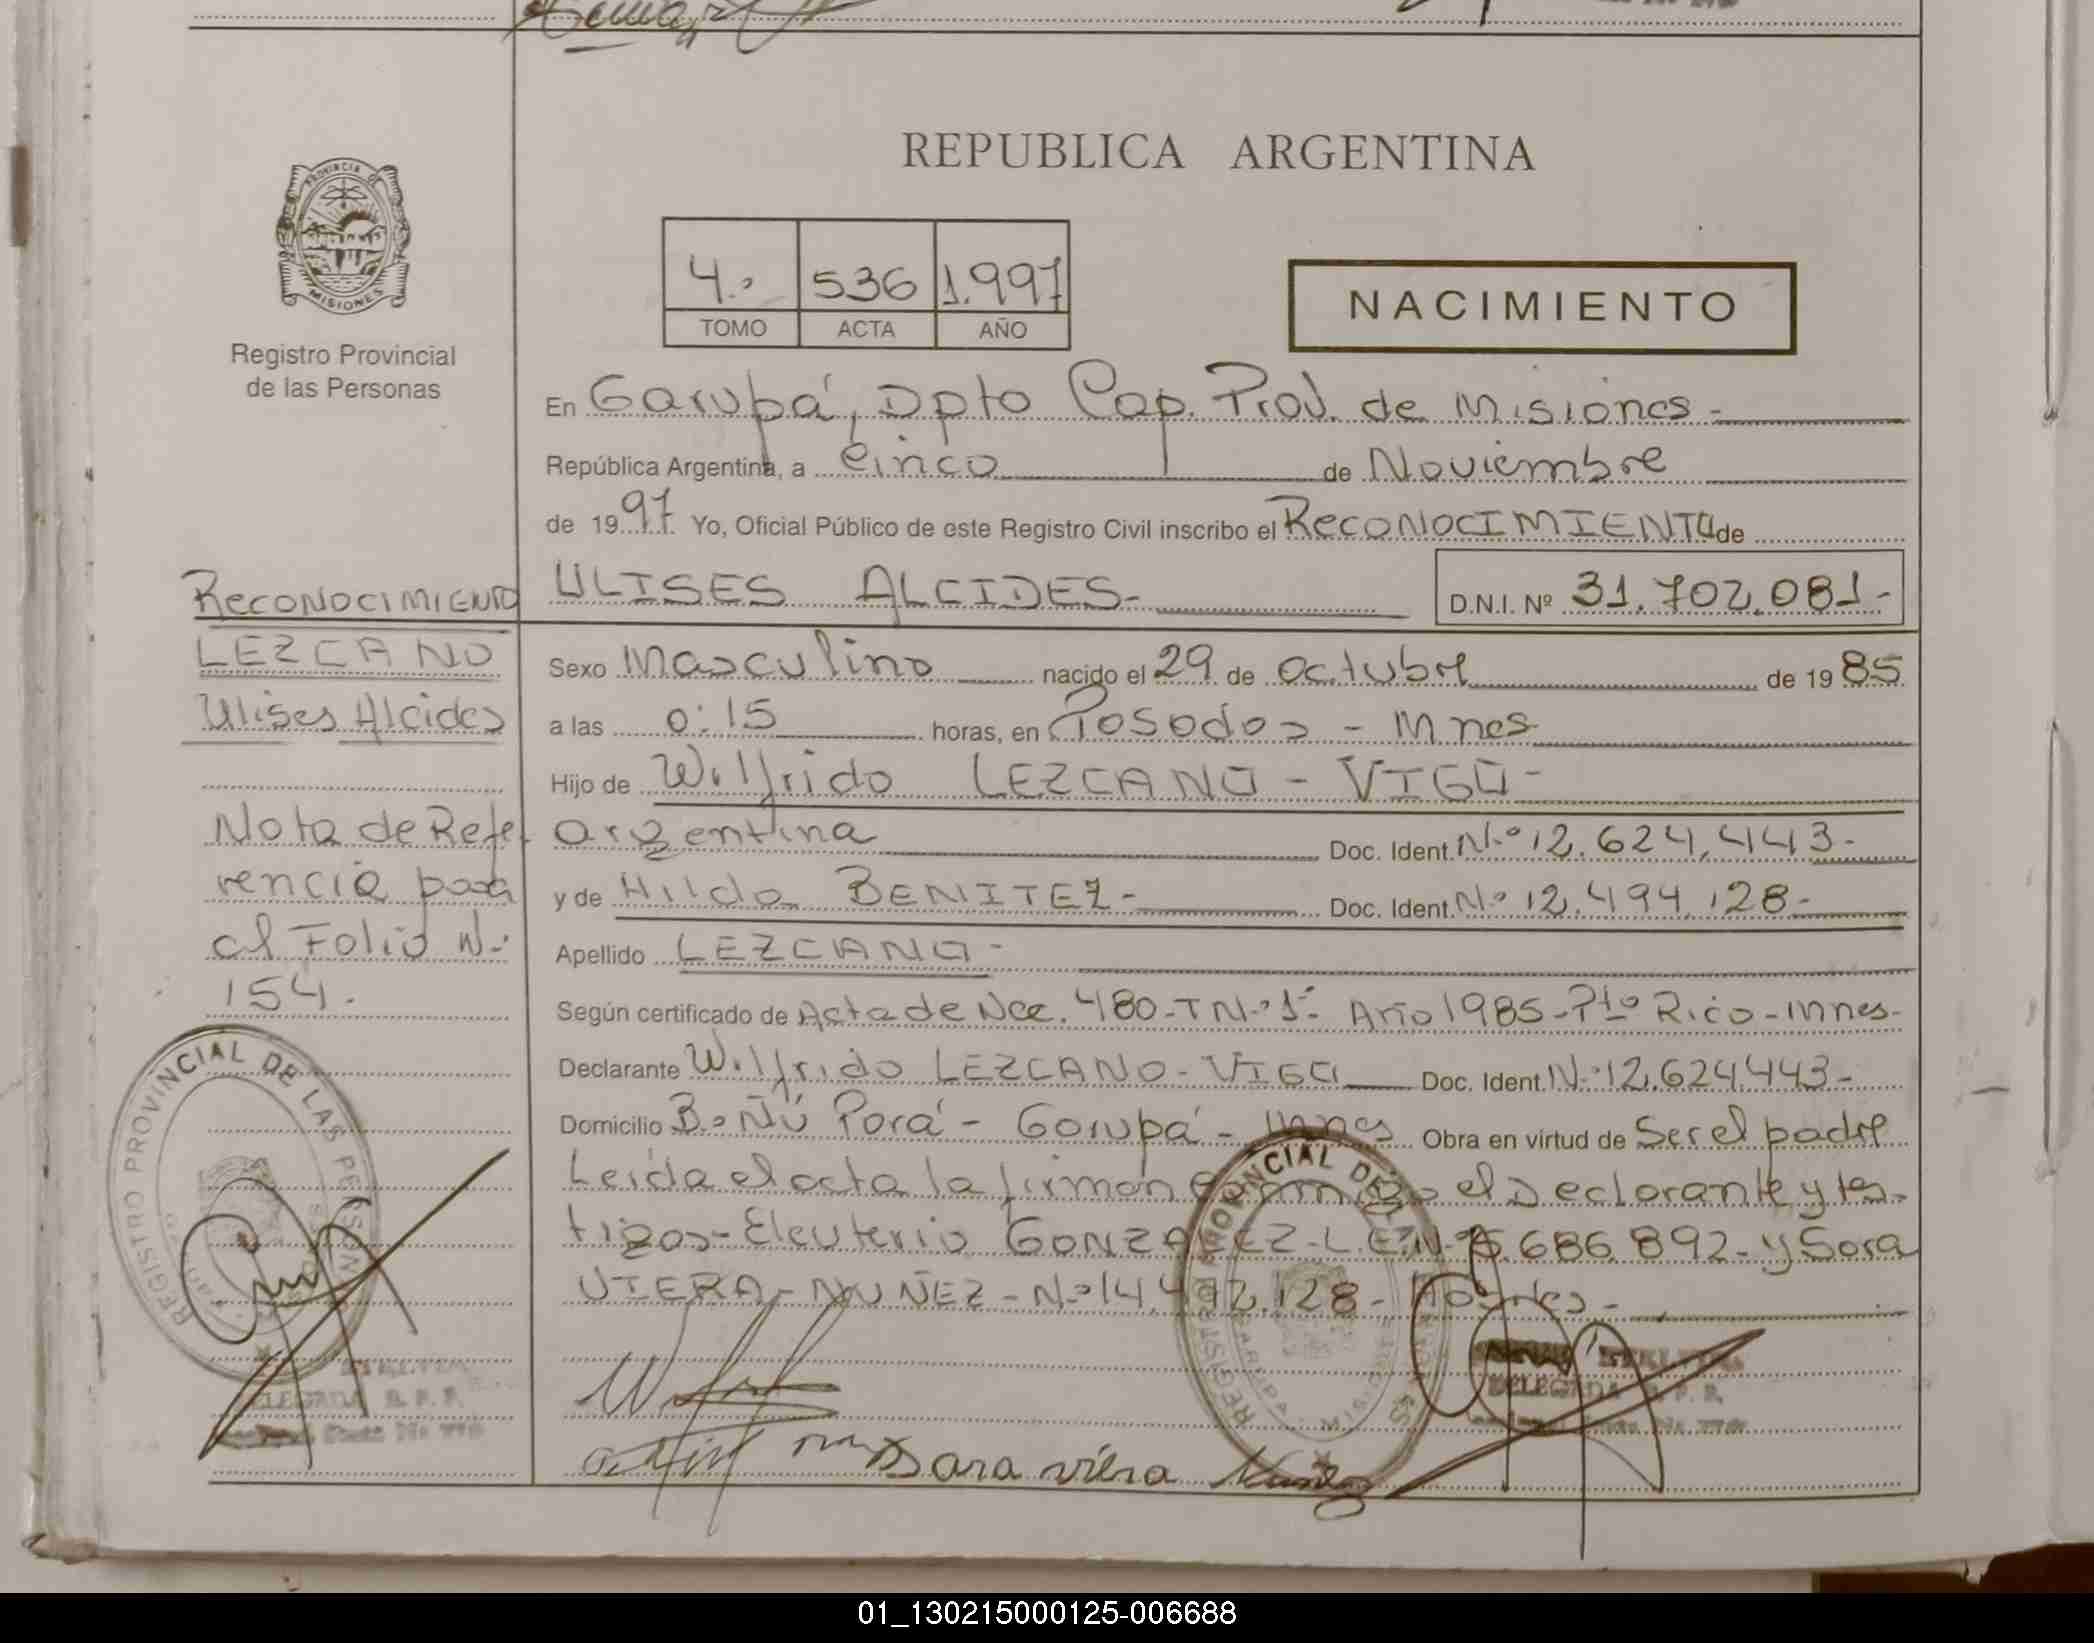 REPUBLICA ARGENTINA
PROVINCIA DE
MISIONES
Registro Provincial
de las Personas
4.º 536 1.997
TOMO ACTA AÑO
NACIMIENTO
En Garupá, Dpto Cap. Prov. de Misiones -
República Argentina, a Cinco de Noviembre
de 1997. Yo, Oficial Público de este Registro Civil inscribo el RECONOCIMIENTO de
ULISES ALCIDES- D.N.I. Nº 31.702.081-
Sexo Masculino nacido el 29 de octubre de 1985
a las 0:15 horas, en Posadas - Mnes
Hijo de Wilfrido LEZCANO - VIGO -
argentina Doc. Ident. N.º 12.624.443-
y de Hilda BENITEZ- Doc. Ident. N.º 12.494.128-
Apellido LEZCANO -
Según certificado de Acta de Nac. 480-T N.º 1- Año 1985-Pto Rico-Mnes-
Declarante Wilfrido LEZCANO-VIGO Doc. Ident. N.º 12.624.443-
Domicilio B.º Ñú Porá - Garupá - Mnes Obra en virtud de Ser el padre
Leída el acta la firman conmigo el Declarante y tes-
tigos-Eleuterio GONZALEZ-L.E.N.º 686.892-y Sara
VIERA-NUÑEZ-N.º 14. 128-
Sara viera Nuñez
RECONOCIMIENTO
LEZCANO
Ulises Alcides
Nota de Refe-
rencia pasa
al Folio N.º
154.
REGISTRO PROVINCIAL DE LAS PERSONAS
DELEGADA R. P. P.
REGISTRO PROVINCIAL DE LAS PERSONAS
DELEGADA R. P. P.
01_130215000125-006688